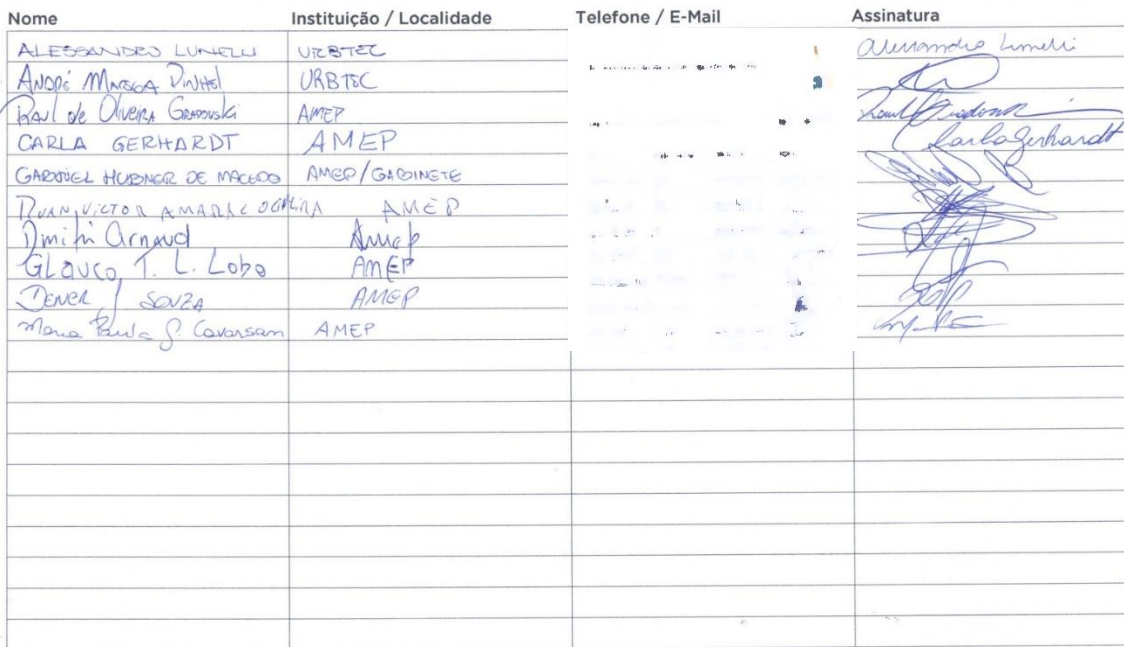 Nome Instituição / Localidade Telefone / E-Mail Assinatura
ALESSANDRO LUNELLI URBTEC Alessandro Lunelli
ANDRÉ URBTEC
Raul de Oliveira Gradovski AMEP
CARLA GERHARDT AMEP Carla Gerhardt
GABRIEL HUBNER DE MACEDO AMEP/GABINETE
RUAN VICTOR AMARAL AMEP
Dmitri Arnaud Amep
GLauco T. L. Lobo AMEP
DENER SOUZA AMEP
Maria Paula S. Cavarsan AMEP